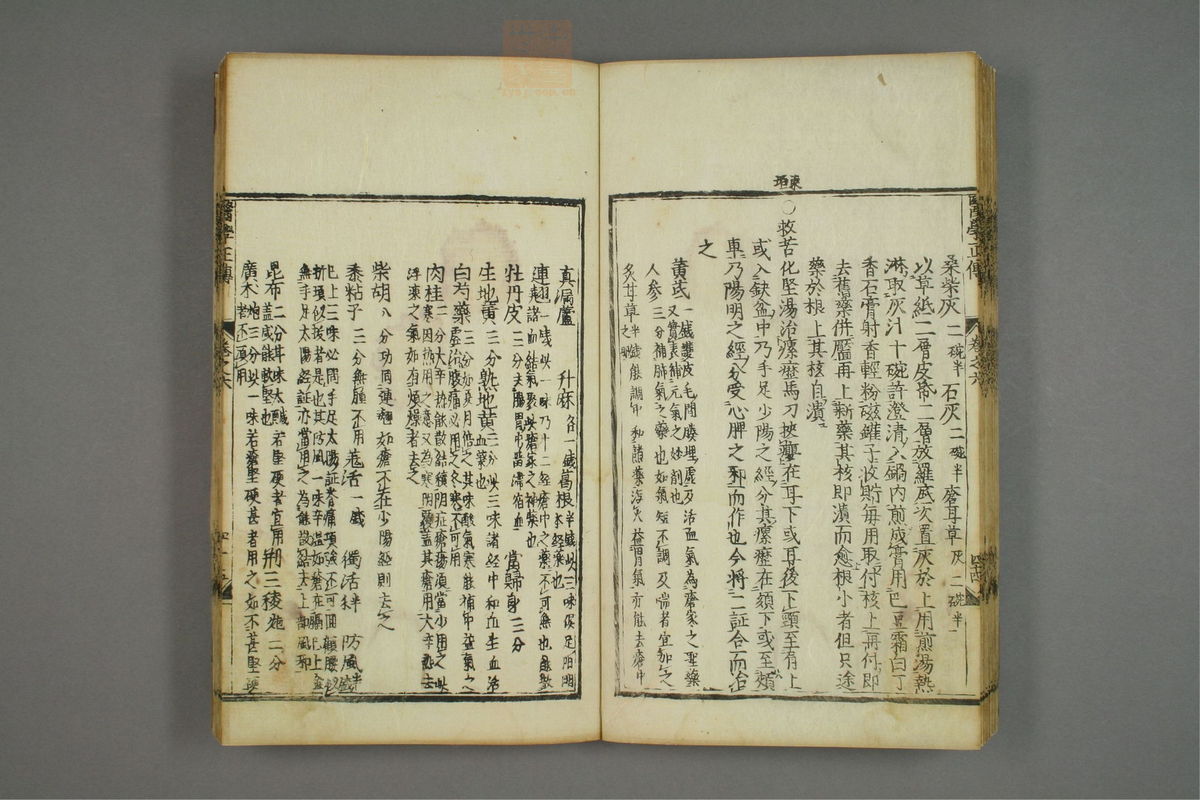 醫學正傳
卷之六
桑柴灰二碗半 石灰二碗半 䕷耳草灰二碗半
以草紙二層皮帋二層放羅底次置灰於上用煎湯熱
淋取灰汁十碗許澄清入鍋內煎成膏用巴豆霜白丁
香石膏射香輕粉磁罐子收貯每用取付核上再付即
去舊藥併靨再上新藥其核即潰而愈根小者但只途
藥於根上其核自潰
東垣
○救苦化坚湯治瘰癧馬刀挾癭在耳下或耳後下頸至肩上
或入缺盆中乃手足少陽之經分其瘰癧在頦下或至頰
車乃陽明之經分受心脾之邪而作也今將二証合而治
之
黃芪一錢護皮毛閉腠理虛及活血氣為瘡家之聖藥
又實表補元氣之妙劑也
人參三分補肺氣之藥也如氣短不調及喘者宜加之
炙甘草半錢能調中和諸藥瀉火益胃氣亦能去瘡中
之邪
真漏蘆 升麻各一錢葛根半錢以三味俱足阳明
本經藥也
連翹一錢此一味乃十二經瘡中之藥不可無也能散
諸血結氣聚此瘡家之神藥也
牡丹皮三分去腸胃中留滯宿血 當歸身三分
生地黃三分熟地黃三分此三味諸經中和血生血涼
血藥也
白芍藥三分如夏月倍之其味酸氣寒能補中益氣之
虛治腹痛必用之冬寒不可用
肉桂二分大辛热能散結積阴症瘡瘍須當少用之此
寒因热用之意又為寒阴覆蓋其瘡用大辛热以去
浮凍之氣如有煩燥者去之
柴胡八分功同連翹如瘡不在少陽經則去之
黍粘子三分無腫不用 羗活一錢 獨活 防風半錢
已上三味必関手足太陽証脊痛項強不可回顧腰似
折項似拔者是也其防風一味辛温如瘡在膈已上
無手足太陽經証亦當用之為能散結去上部風邪
昆布二分其味大醎若堅硬者宜用 荆三稜炮二分
盖咸能軟堅也
廣朮炮三分此一味若瘡堅硬甚者用之如不甚堅硬
者不須用
醫學正傳
卷之六